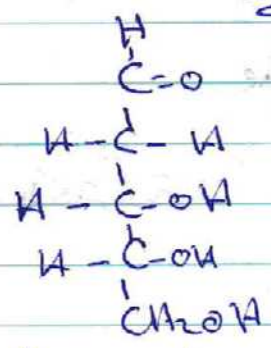 H
C=O
H-C-H
H-C-OH
H-C-OH
CH2OH